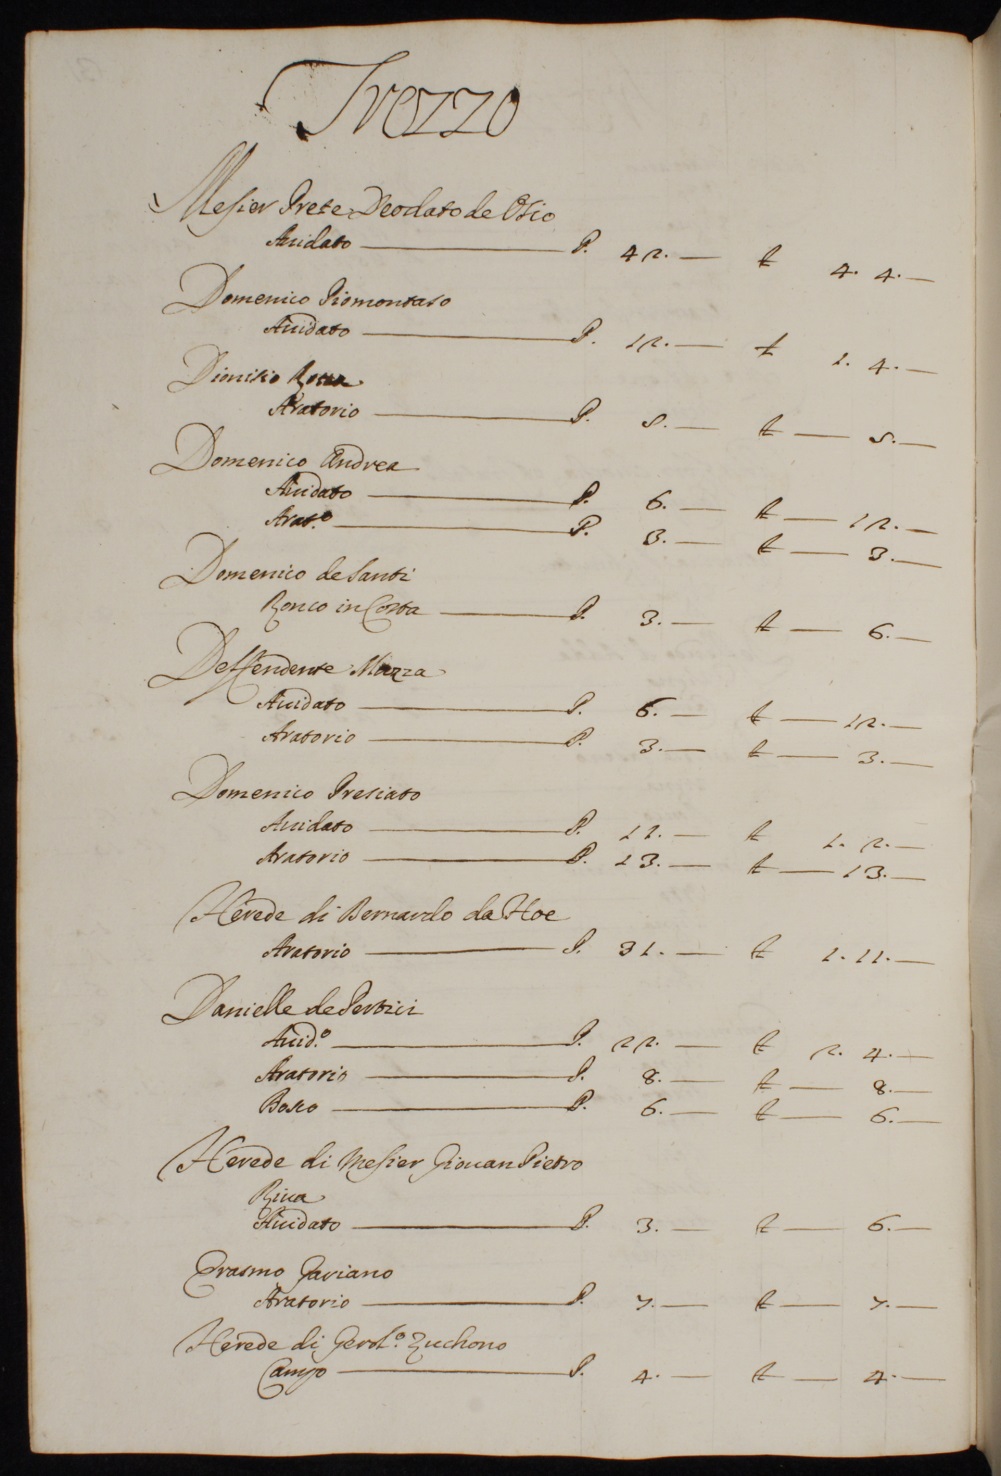 Trezzo
Mesier Prete Deodato de Osio
Auidato P. 42. — £ 4. 4. —
Domenico Piomontaso
Auidato P. 12. — £ 1. 4. —
Dionisio Rossa
Aratorio P. 5. — £ — 5. —
Domenico Andrea
Auidato P. 6. — £ — 12. —
Arat.º P. 3. — £ — 3. —
Domenico de Santi
Ronco in Costa P. 3. — £ — 6. —
Deffendente Mazza
Auidato P. 6. — £ — 12. —
Aratorio P. 3. — £ — 3. —
Domenico Presiato
Auidato P. 11. — £ 1. 2. —
Aratorio P. 13. — £ — 13. —
Herede di Bernardo da Hoe
Aratorio P. 31. — £ 1. 11. —
Danielle de Pertici
Auid.º P. 22. — £ 2. 4. —
Aratorio P. 8. — £ — 8. —
Bosco P. 6. — £ — 6. —
Herede di Mesier Giouan Pietro
Riua
Auidato P. 3. — £ — 6. —
Erasmo Gaviano
Aratorio P. 7. — £ — 7. —
Herede di Gerol.º Zuchono
Campo P. 4. — £ — 4. —